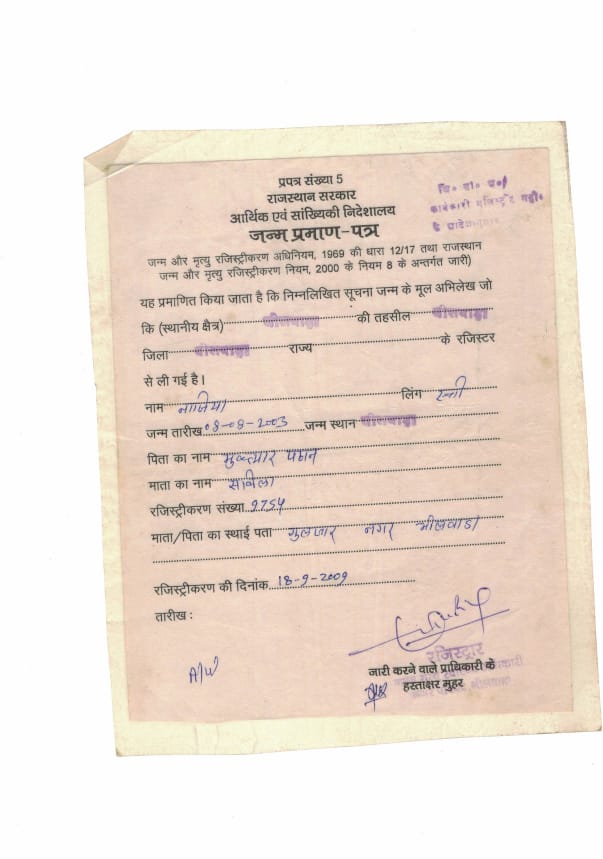 प्रपत्र संख्या 5
राजस्थान सरकार
आर्थिक एवं सांख्यिकी निदेशालय
जन्म प्रमाण-पत्र
जन्म और मृत्यु रजिस्ट्रीकरण अधिनियम, 1969 की धारा 12/17 तथा राजस्थान
जन्म और मृत्यु रजिस्ट्रीकरण नियम, 2000 के नियम 8 के अन्तर्गत जारी)
यह प्रमाणित किया जाता है कि निम्नलिखित सूचना जन्म के मूल अभिलेख जो
कि (स्थानीय क्षेत्र) भीलवाड़ा की तहसील भीलवाड़ा
जिला भीलवाड़ा राज्य के रजिस्टर
से ली गई है।
नाम नाजिया लिंग स्त्री
जन्म तारीख 08-08-2003 जन्म स्थान भीलवाड़ा
पिता का नाम मुख्त्यार पठान
माता का नाम
रजिस्ट्रीकरण संख्या
माता/पिता का स्थाई पता गुलजार नगर भीलवाडा
रजिस्ट्रीकरण की दिनांक 18-9-2009
तारीख :
रजिस्ट्रार
जारी करने वाले प्राधिकारी के
हस्ताक्षर मुहर